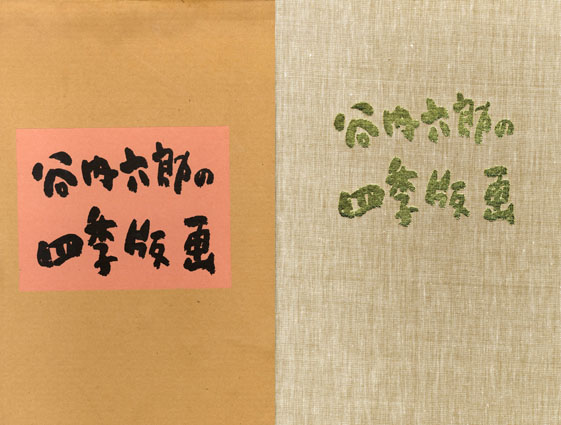 谷内六郎の
四季版画
谷内六郎の
四季版画